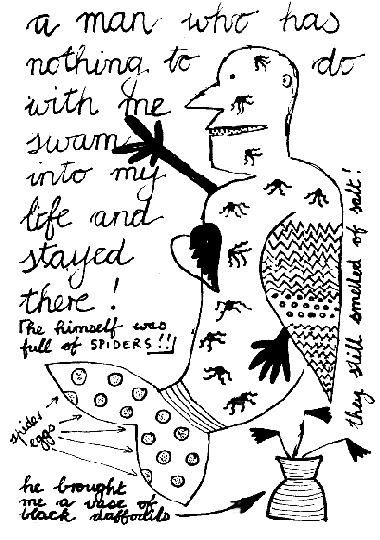 a man who has
nothing to do
with me
swam
into my
life and
stayed
there!
The himself was
full of SPIDERS!!
they still smelled of salt!
spider
eggs
he brought
me a vase of
black daffodils